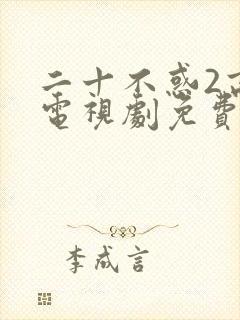 二十不惑2高
電視劇免費
李成言